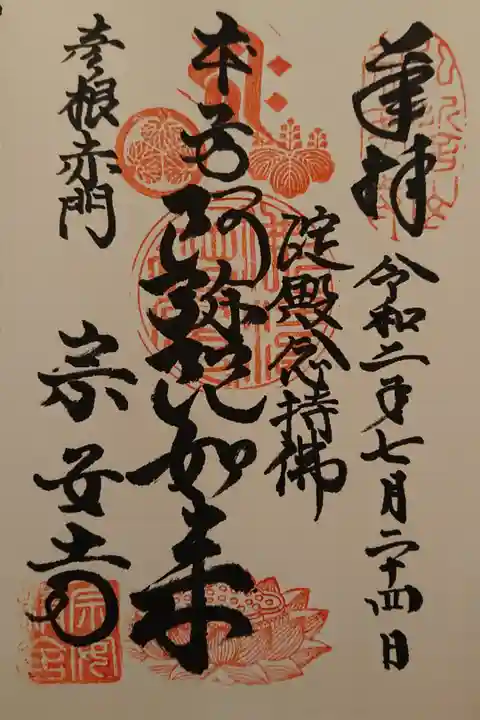 奉拝
令和二年七月二十四日
淀殿念持佛
本尊阿弥陀如来
彦根赤門
宗安寺